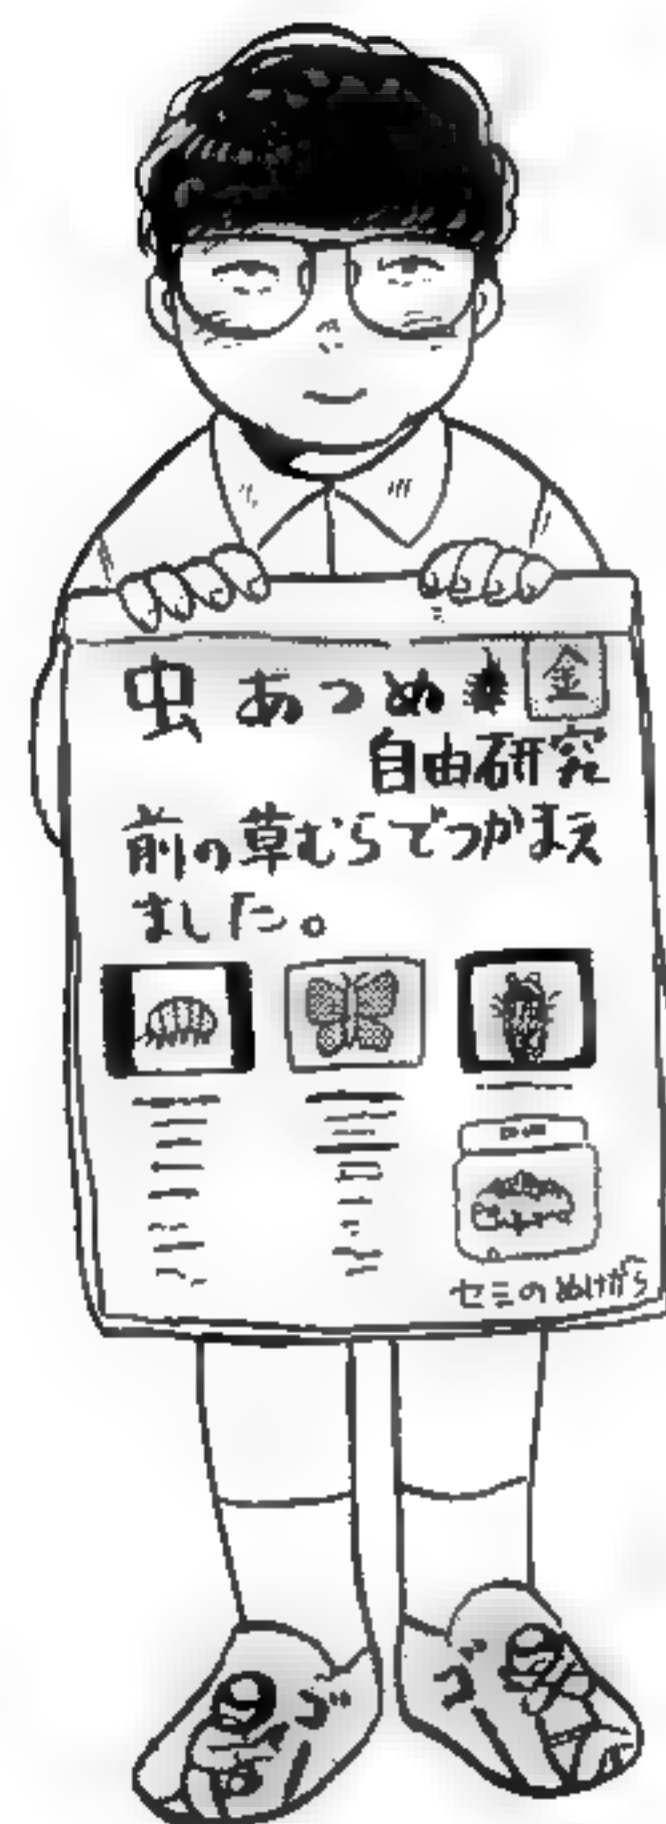 虫あつめ 金
自由研究
前の草むらでつかまえ
ました。
セミのぬけがら
ゴ